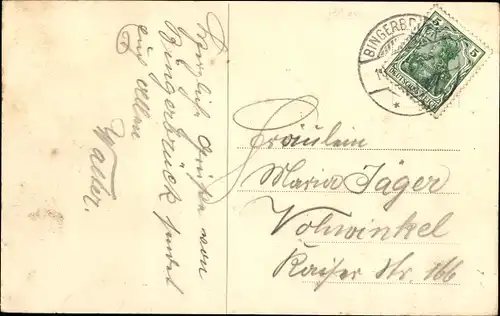 Herzliche Grüße von
Bingerbrück sendet
euch Allen
Walter.
BINGERBRÜCK
5 5
DEUTSCHES REICH
Fräulein
Maria Jäger
Vohwinkel
Kaiser Str. 166